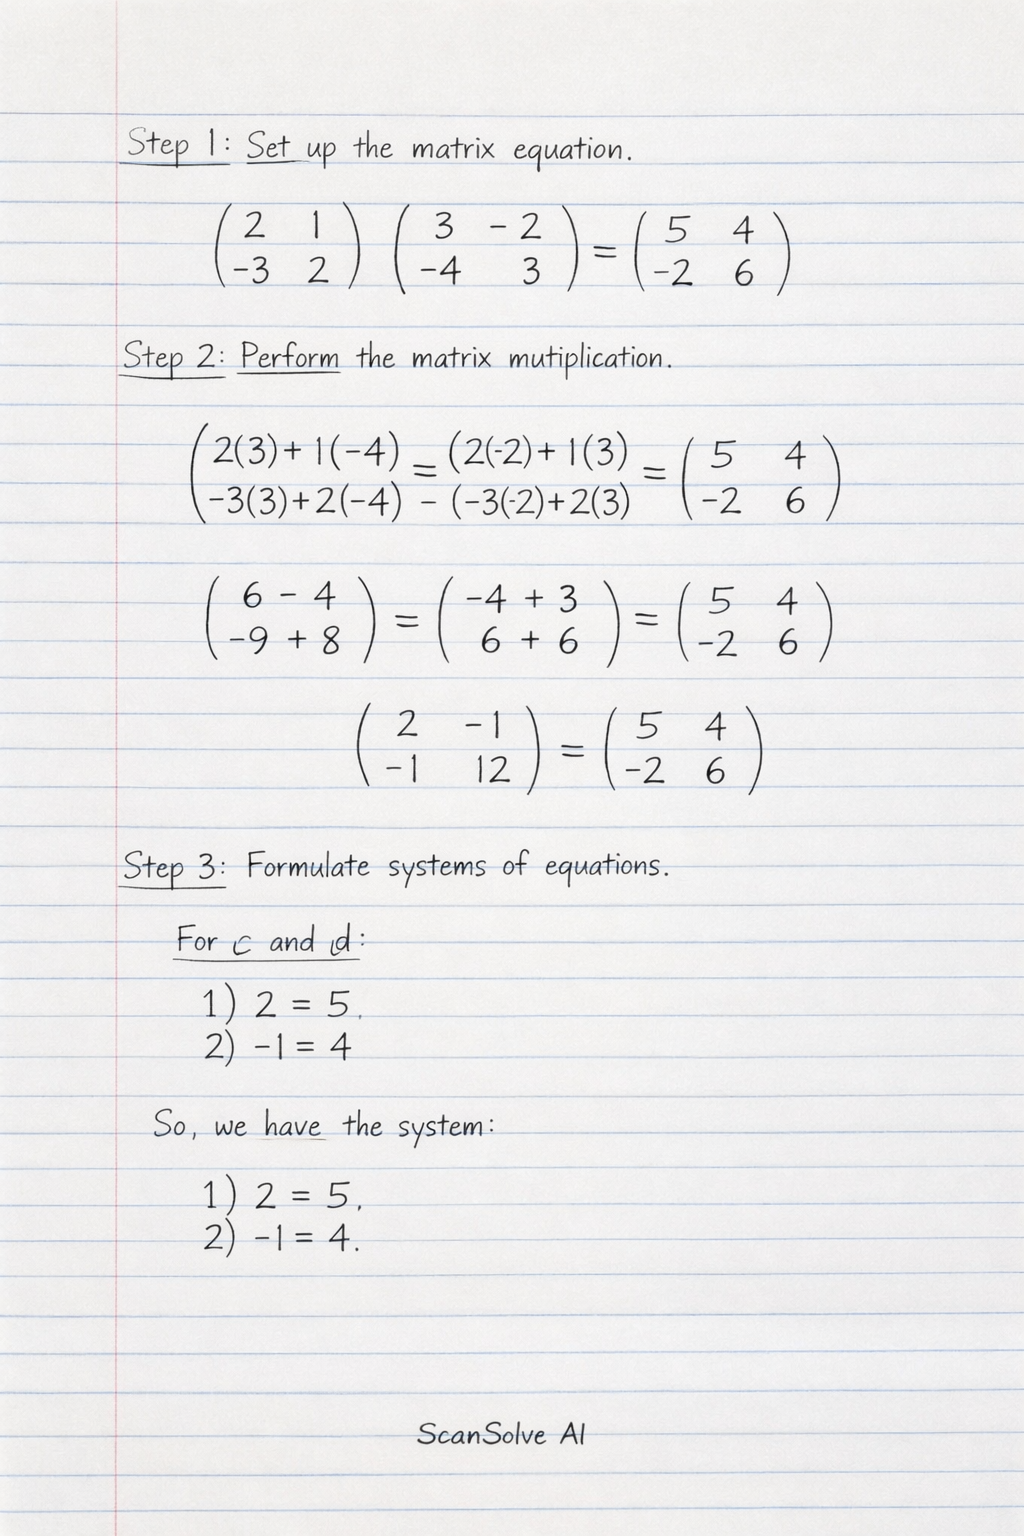 Step 1: Set up the matrix equation.
( 2 1 ) ( 3 -2 ) = ( 5 4 )
( -3 2 ) ( -4 3 ) ( -2 6 )
Step 2: Perform the matrix mutiplication.
( 2(3)+1(-4) = (2(-2)+1(3) = ( 5 4 )
( -3(3)+2(-4) - (-3(-2)+2(3) ( -2 6 )
( 6 - 4 ) = ( -4 + 3 ) = ( 5 4 )
( -9 + 8 ) ( 6 + 6 ) ( -2 6 )
( 2 -1 ) = ( 5 4 )
( -1 12 ) ( -2 6 )
Step 3: Formulate systems of equations.
For c and d:
1) 2 = 5.
2) -1 = 4
So, we have the system:
1) 2 = 5,
2) -1 = 4.
ScanSolve AI